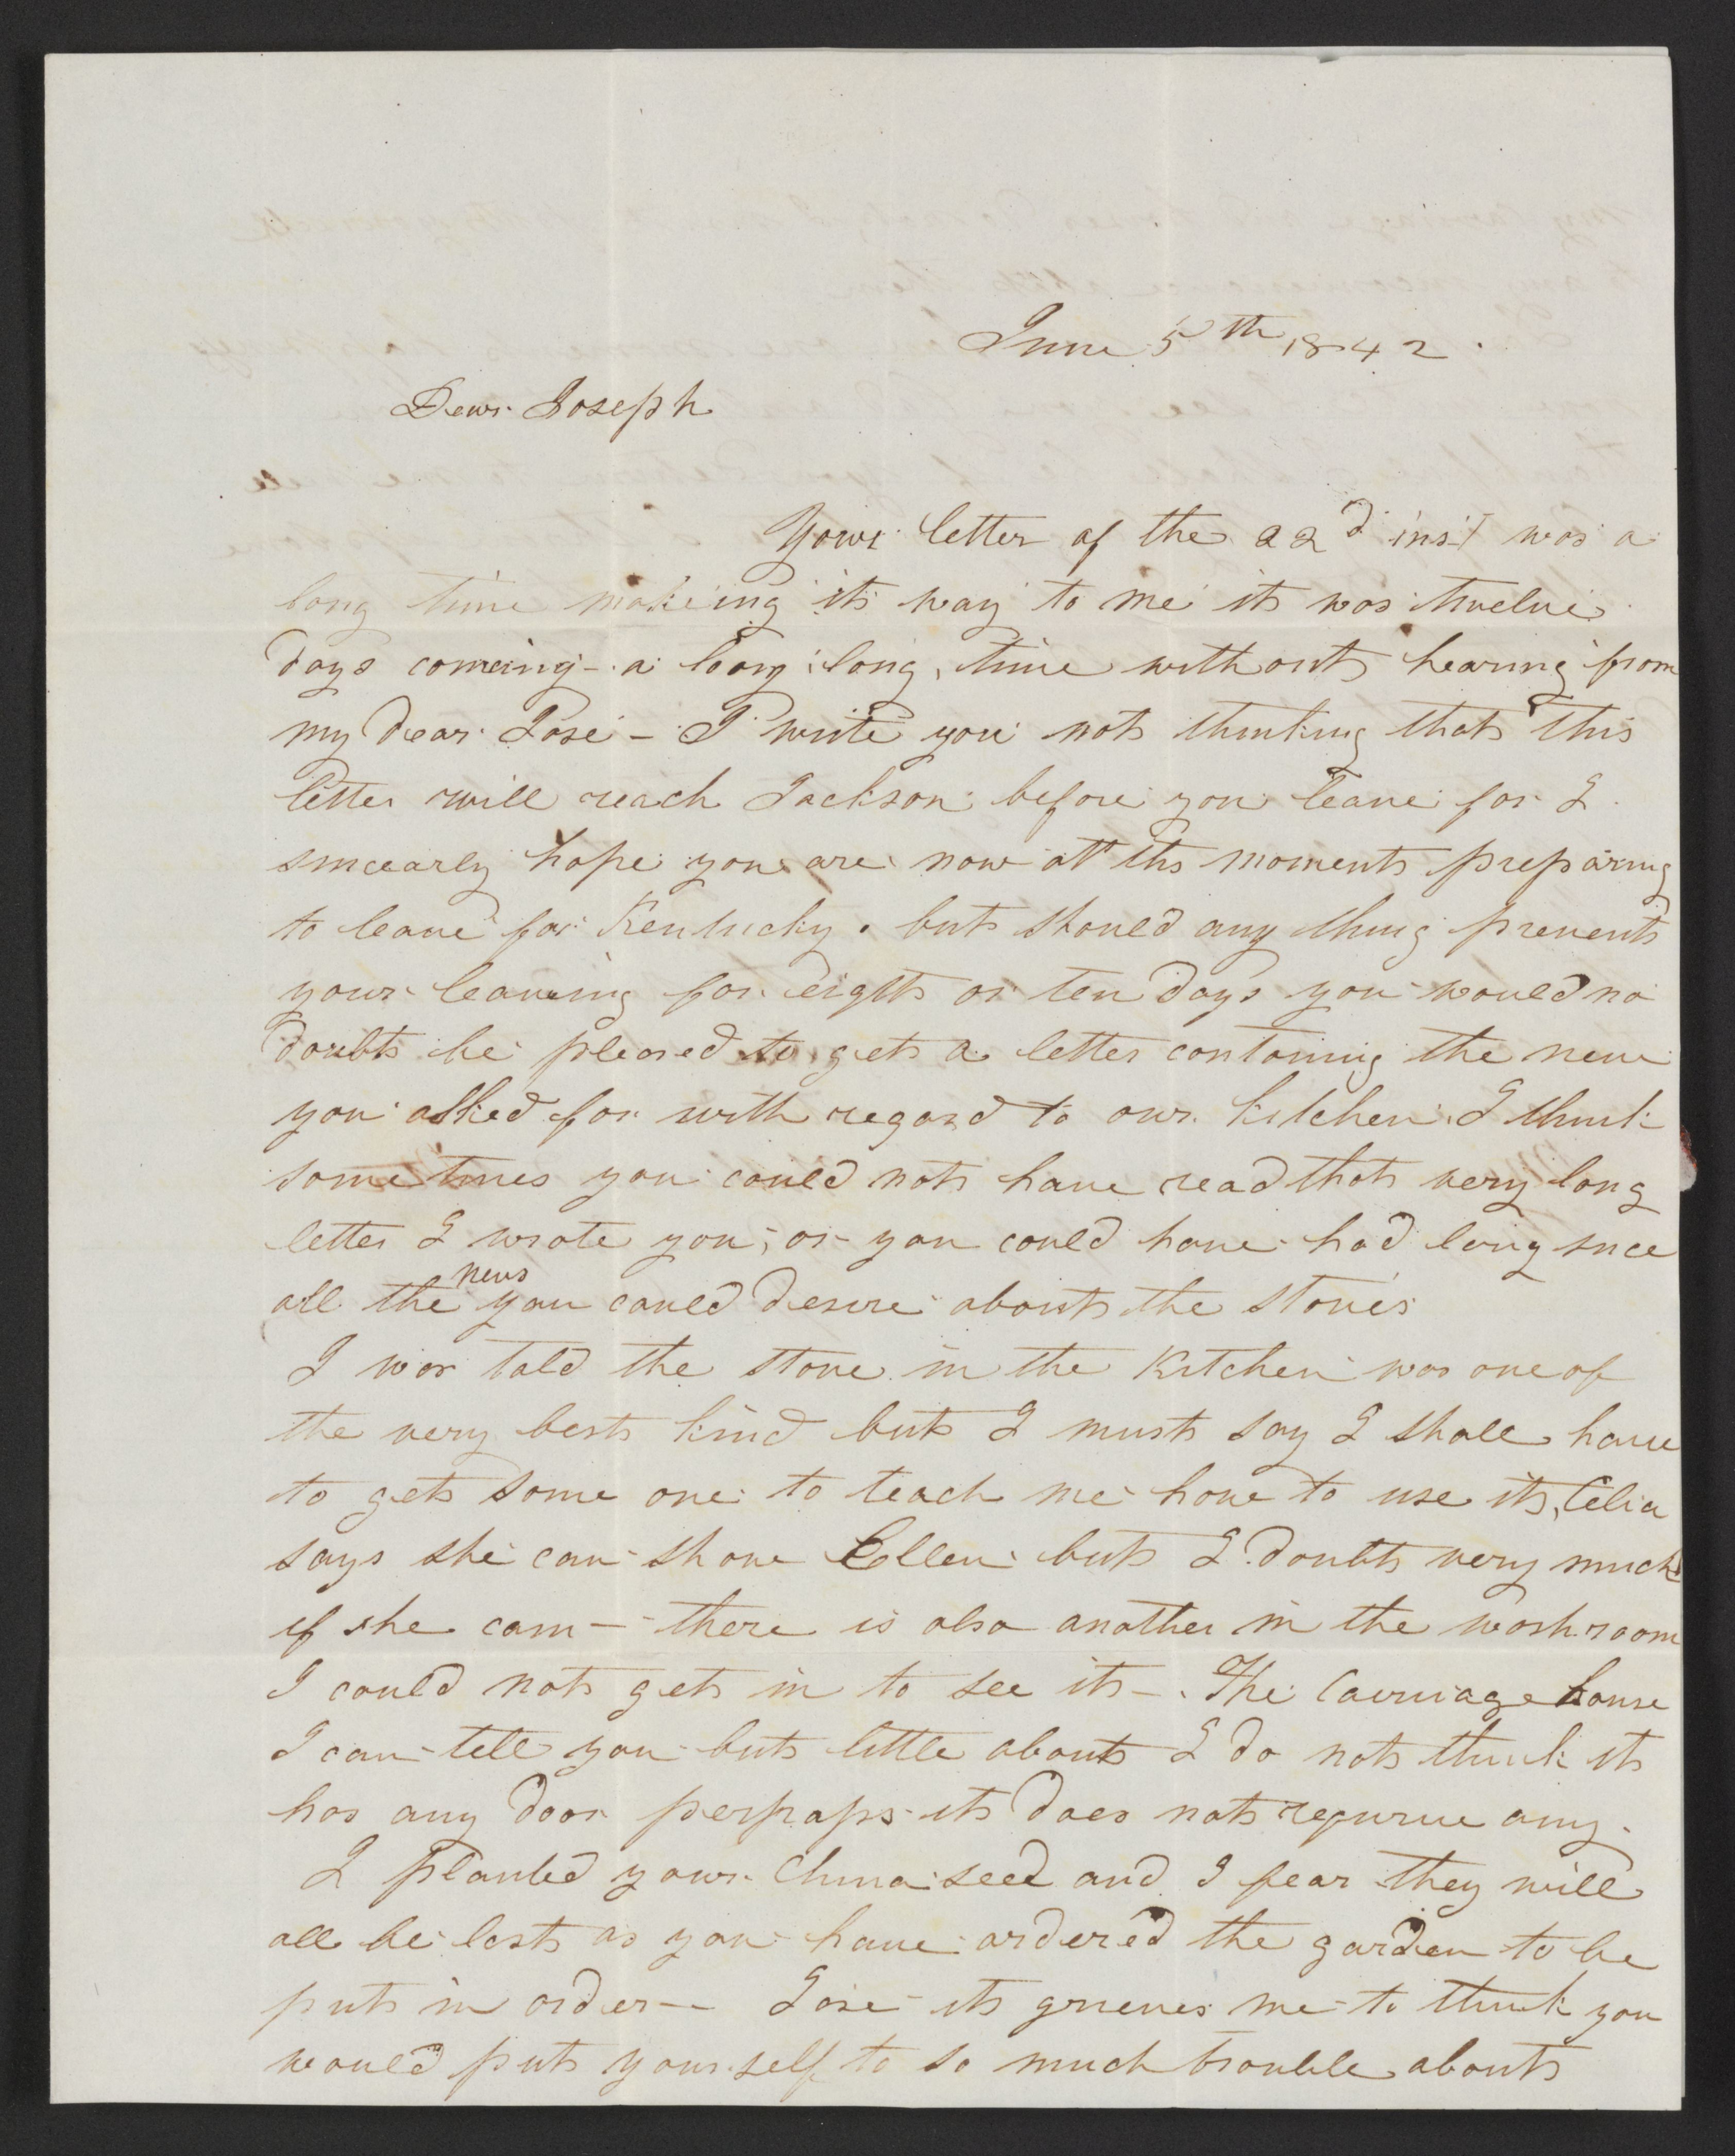 June 5th 1842.
Dear Joseph
Your letter of the 22d inst was a
long time makeing its way to me it was twelve
days comeing - a long long, time without hearing from
my dear Jose - I write you not thinking that this
letter will reach Jackson before you leave for I
sincearly hope you are now at this moment preparing
to leave for Kentucky. but should any thing prevent
your leaveing for eight or ten days you would no
doubt be pleased to get a letter containing the new
you asked for with regard to our kitchen. I think
sometimes you could not have read that very long
letter I wrote you, or you could have had long since
all the news you could desire about the stoves
I was told the stove in the Kitchen was one of
the very best kind but I must say I shall have
to get some one to teach me how to use it, Celia
says she can show Ellen but I doubt very much
if she can - there is also another in the wash room
I could not get in to see it -. The Carriage house
I can tell you but little about I do not think it
has any door perhaps it does not require any.
I planted your China seed and I fear they will
all be lost as you have ordered the garden to be
put in order - Jose it grieves me to think you
would put your self to so much trouble about